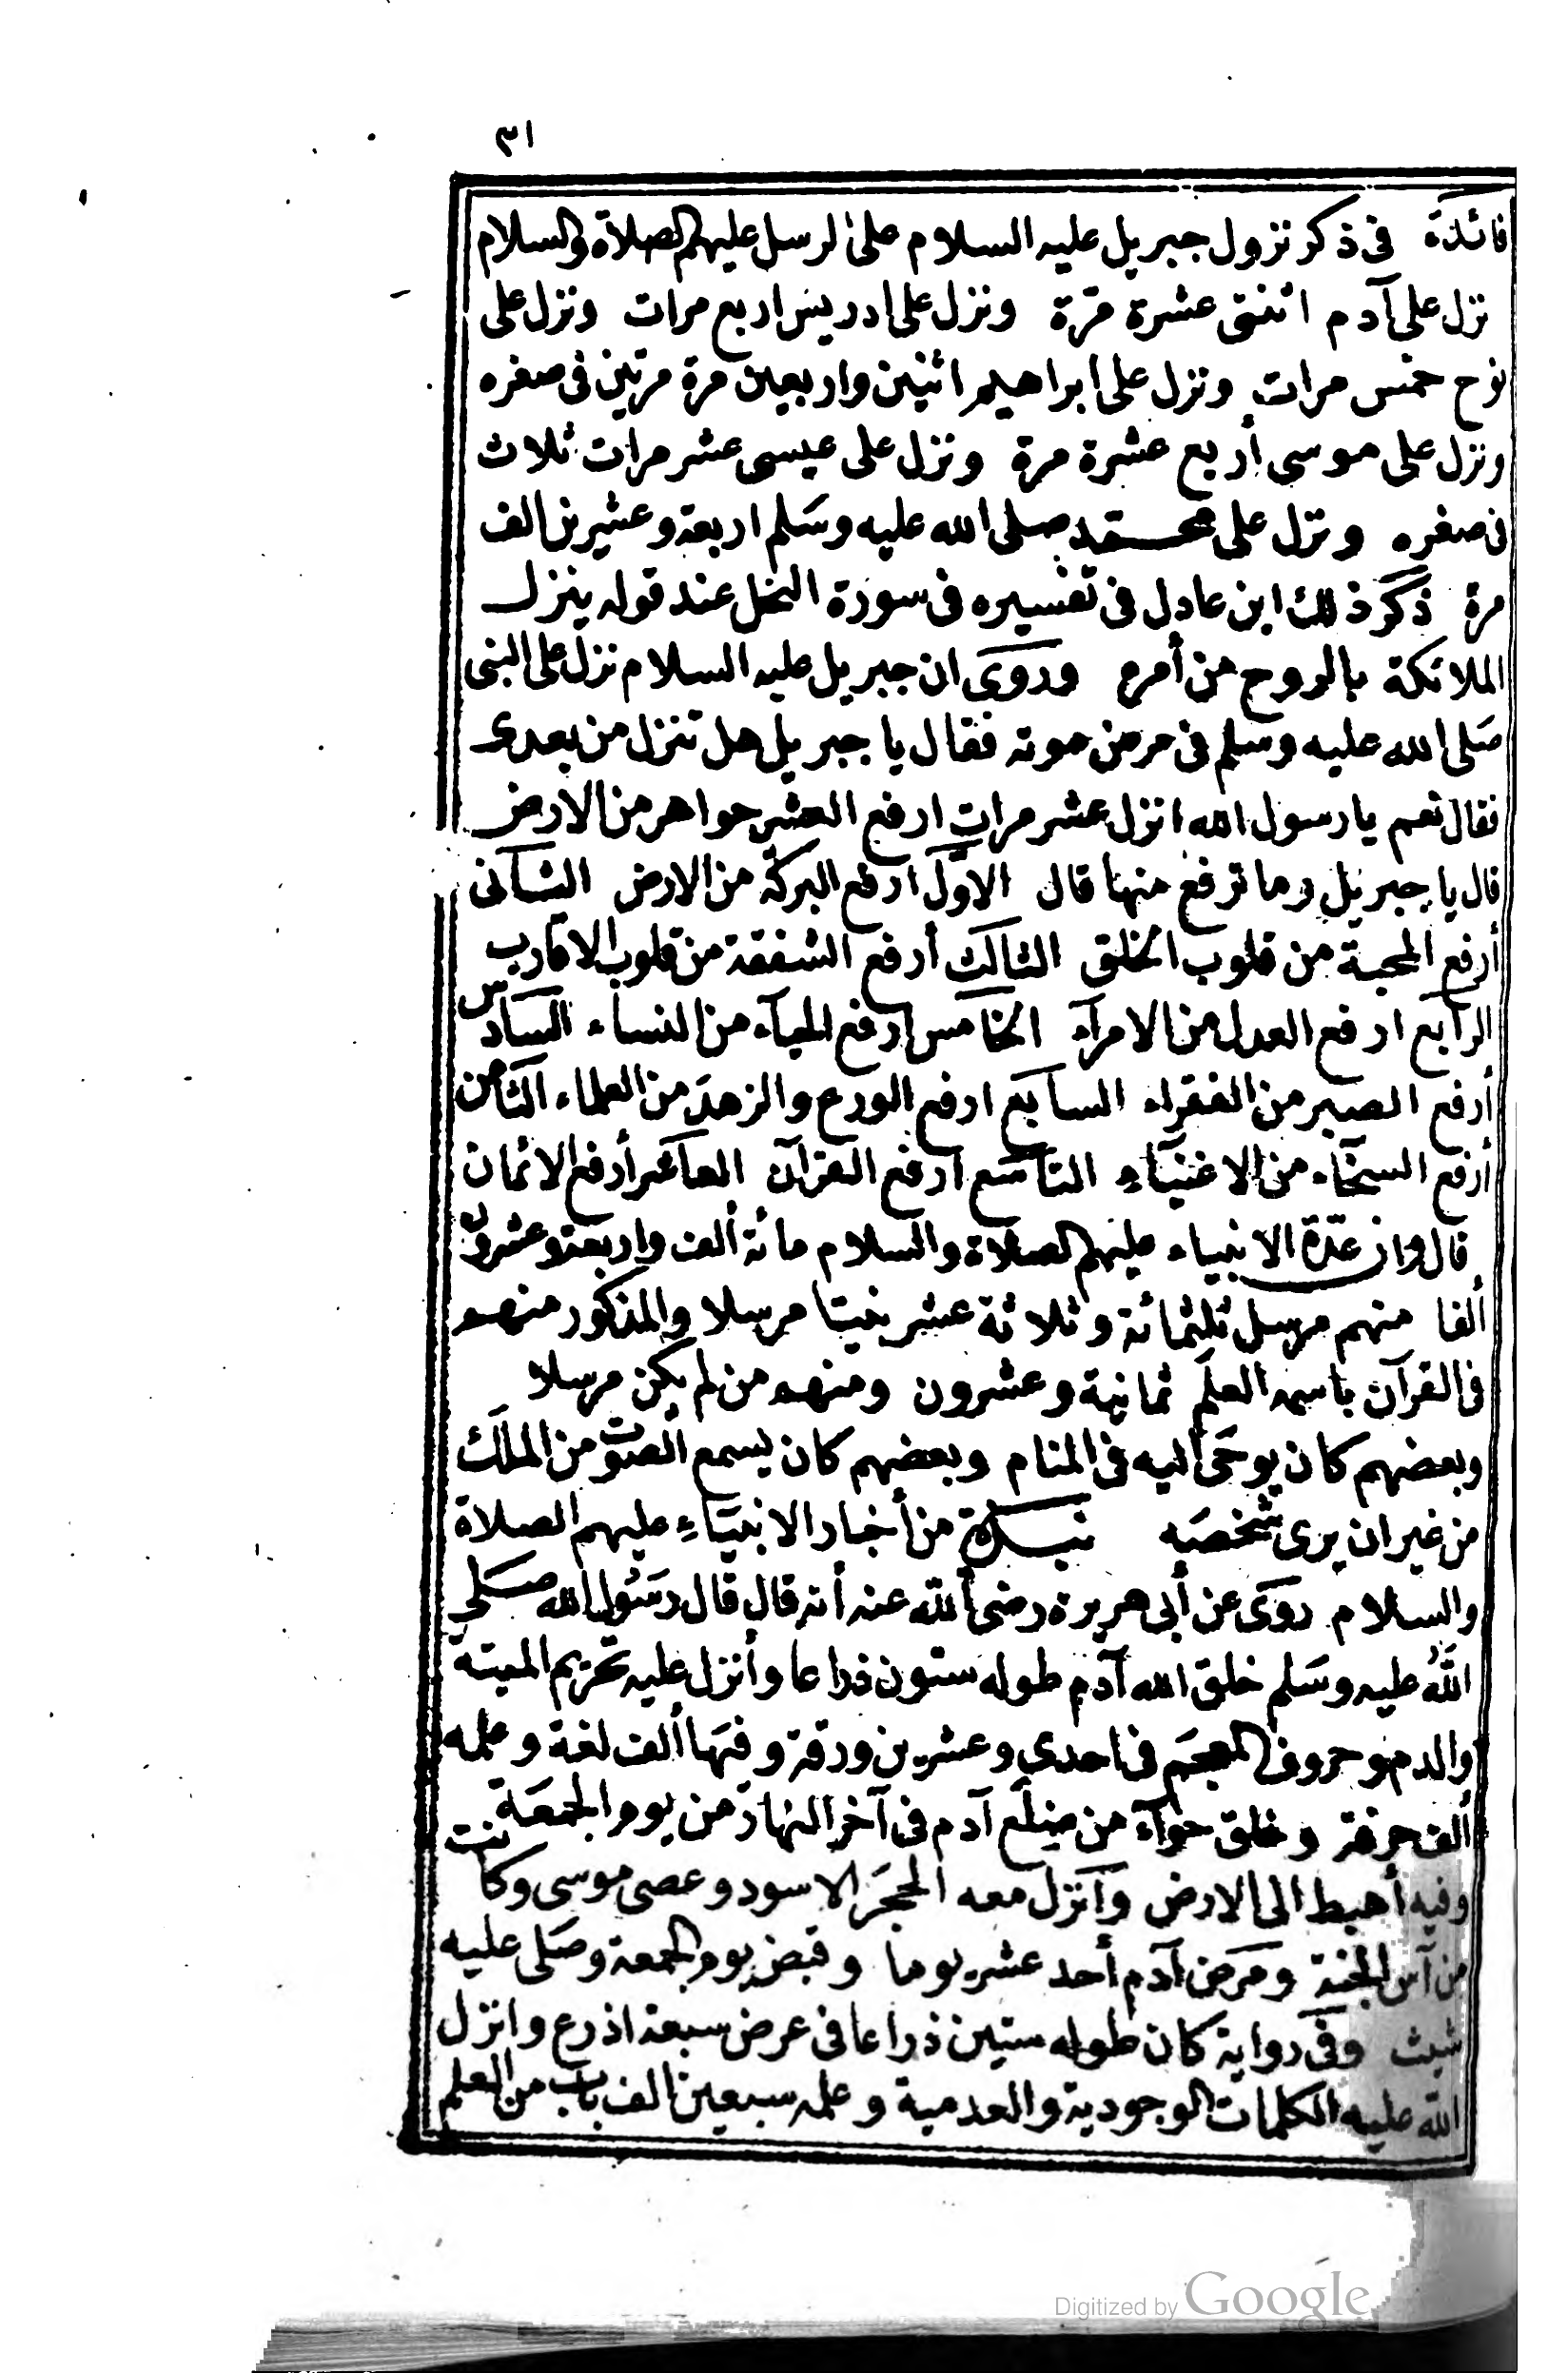 ٣١
فائدة في ذكر نزول جبريل عليه السلام على الرسل عليهم الصلاة والسلام
نزل على آدم اثنتى عشرة مرّة ونزل على ادريس اربع مرات ونزل على
نوح خمس مرات ونزل على ابراهيم اثنين واربعين مرة مرتين فى صغره
ونزل على موسى أربع عشرة مرة ونزل على عيسى عشر مرات ثلاث
فى صغره ونزل على محمد صلى الله عليه وسلم اربعة وعشرين الف
مرة ذكر ذلك ابن عادل فى تفسيره فى سورة النحل عند قوله ينزل
الملائكة بالروح من أمره وروى ان جبريل عليه السلام نزل على النبى
صلى الله عليه وسلم فى مرض موته فقال يا جبريل هل تنزل من بعدى
فقال نعم يا رسول الله انزل عشر مرات ارفع العشر جواهر من الارض
قال يا جبريل وما ترفع منها قال الاوّل ارفع البركة من الارض الثانى
أرفع المحبة من قلوب الخلق الثالث أرفع الشفقة من قلوب الاقارب
الرابع ارفع العدل من الامرآء الخامس ارفع الحيآء من النساء السادس
أرفع الصبر من الفقراء السابع ارفع الورع والزهد من العلماء الثامن
أرفع السخآء من الاغنيآء التاسع ارفع القرآن العاشر أرفع الائمان
قال وان عدّة الانبياء عليهم الصلاة والسلام مائة ألف واربعة وعشرون
ألفا منهم مرسل ثلثمائة وثلاثة عشر نبيا مرسلا والمذكور منهم
فى القرآن باسمه العلم ثمانية وعشرون ومنهم من لم يكن مرسلا
وبعضهم كان يوحى اليه فى المنام وبعضهم كان يسمع الصوت من الملك
من غير ان يرى شخصه نبذة من أخبار الانبيآء عليهم الصلاة
والسلام روى عن أبى هريرة رضى الله عنه أنه قال قال رسول الله صلى
الله عليه وسلم خلق الله آدم طوله ستون ذراعا وأنزل عليه تحريم الميتة
والدم وحروف المعجم فى احدى وعشرين ورقة وفيها ألف لغة وعلمه
ألف حرفة وخلق حوآء من ضلع آدم فى آخر النهار من يوم الجمعة
وفيه أهبط الى الارض وأنزل معه الحجر الاسود وعصى موسى وكانت
من آس الجنة ومرض آدم أحد عشر يوما وقبض يوم الجمعة وصلى عليه
شيث وفى رواية كان طوله ستين ذراعا فى عرض سبعة اذرع وانزل
الله عليه الكلمات الوجودية والعدمية وعلمه سبعين الف باب من العلم
Digitized by Google